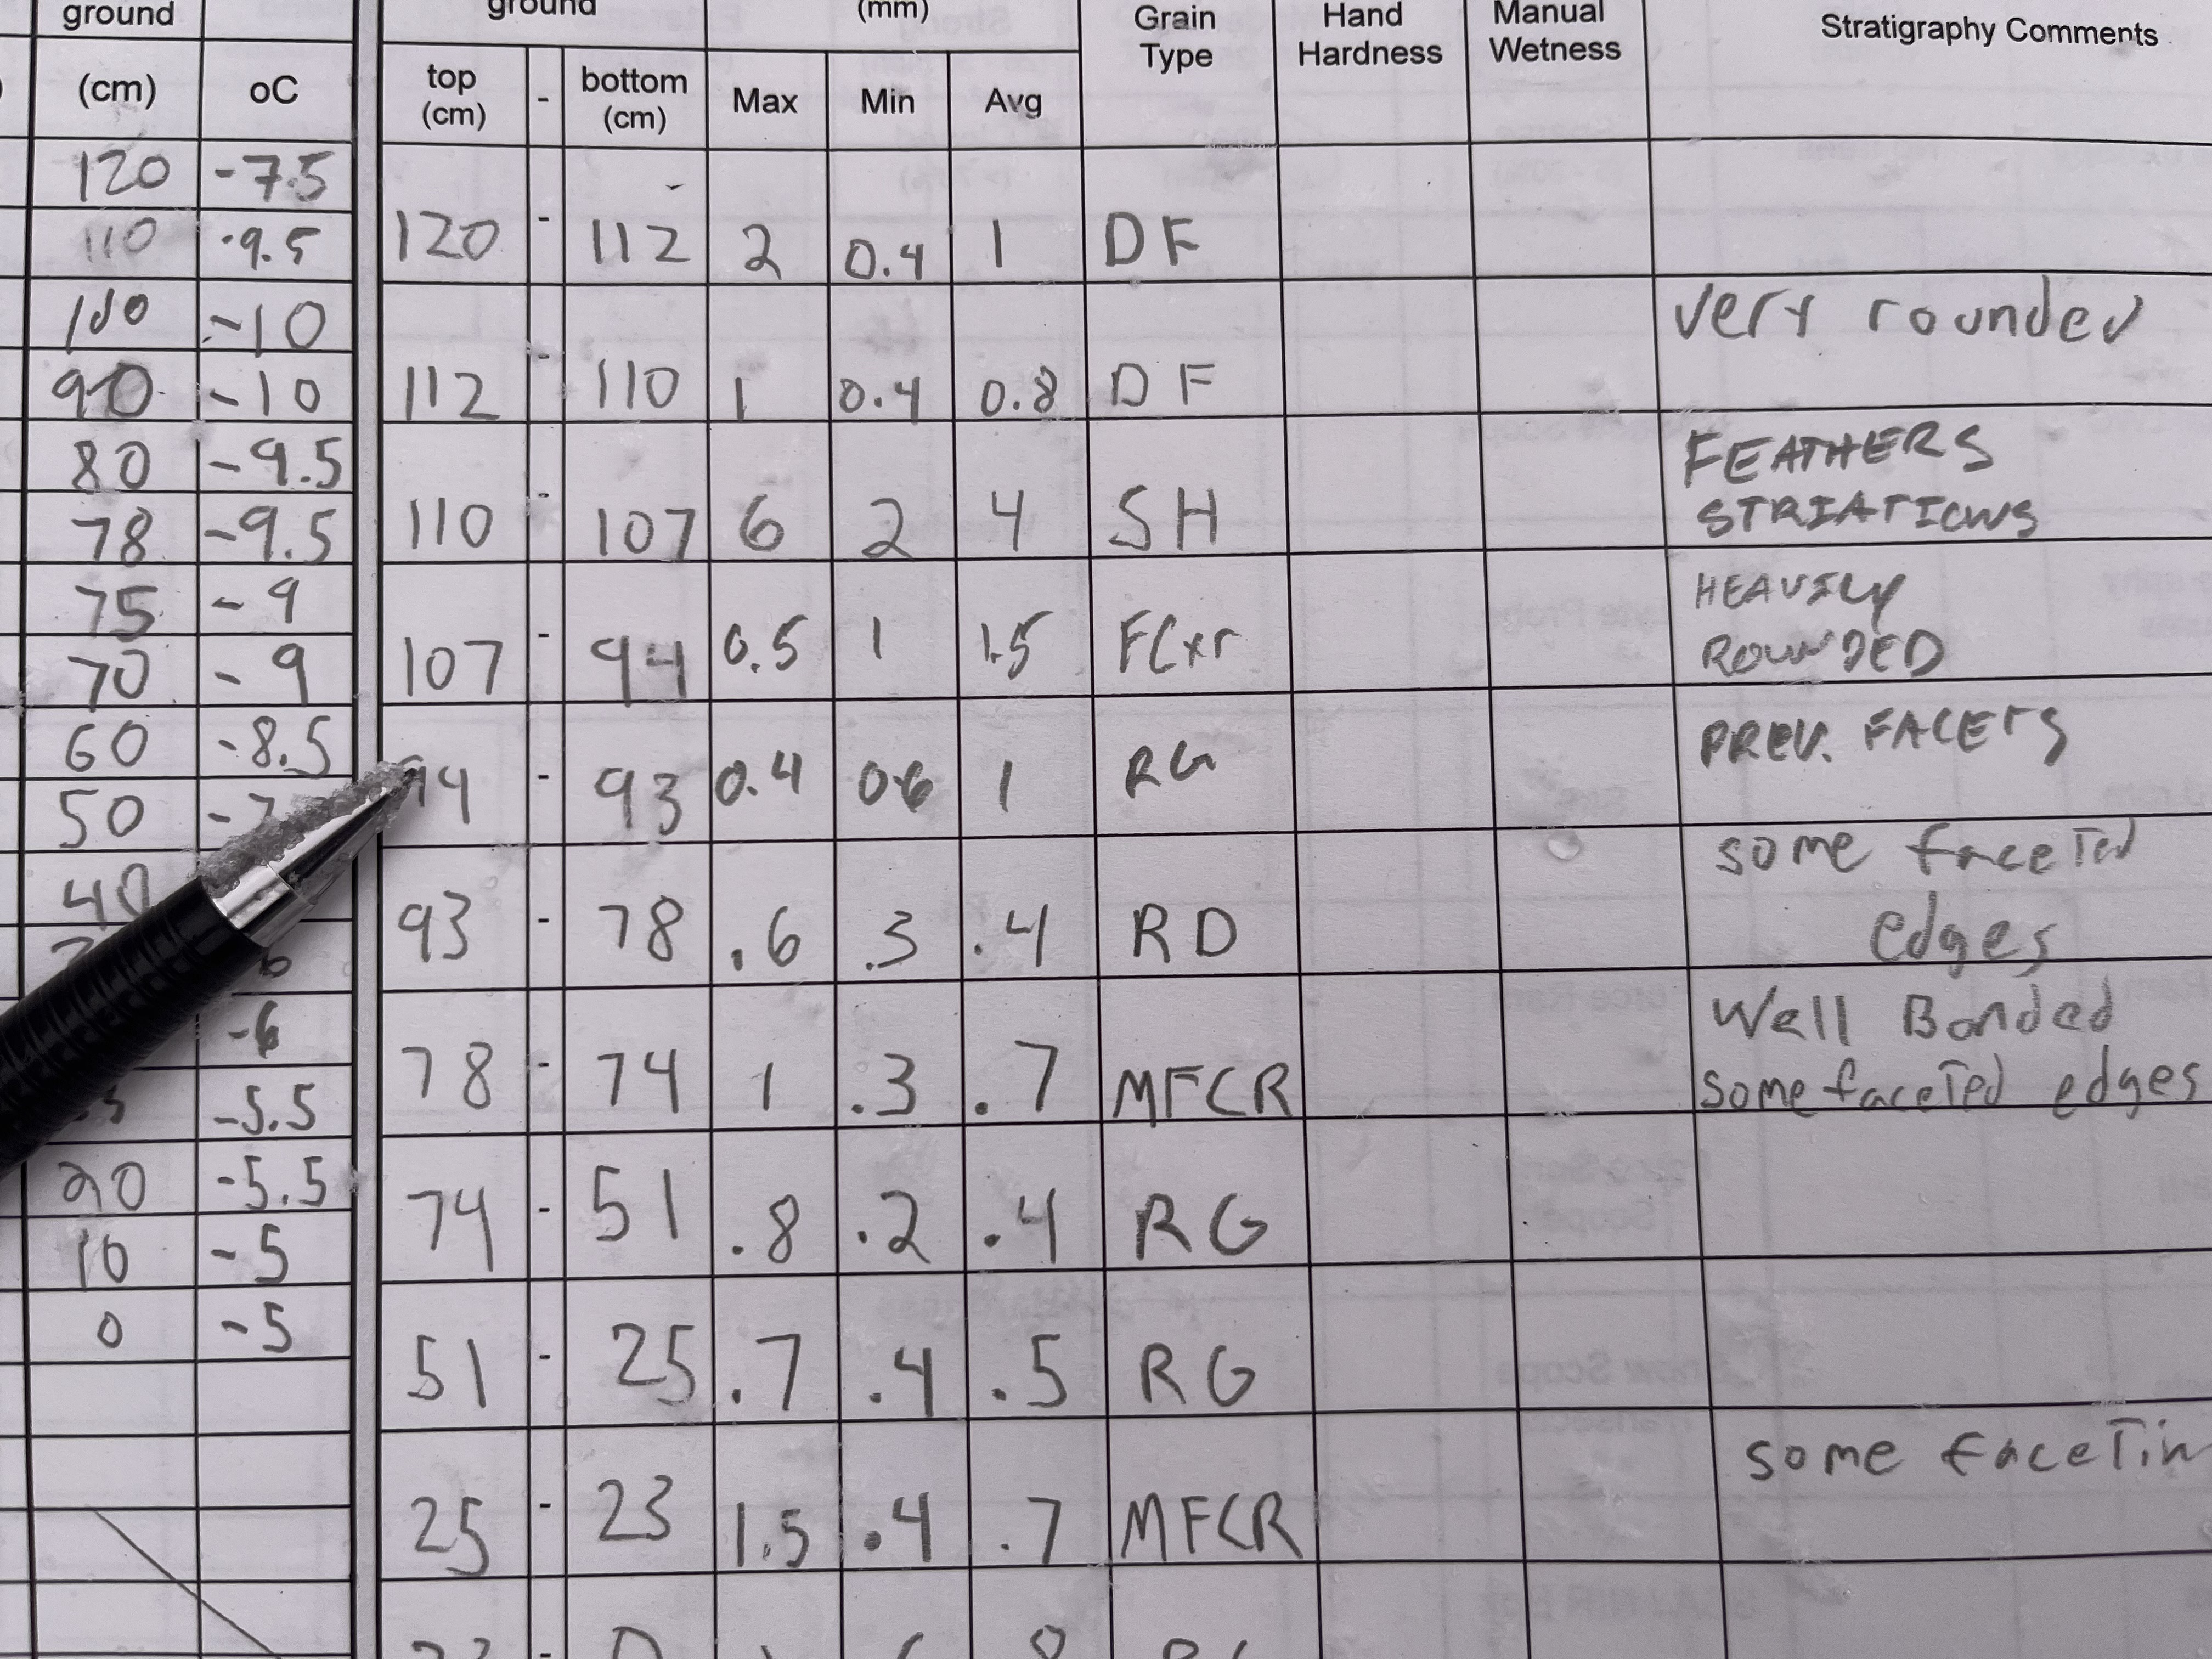 ground
(cm) oC
120 -7.5
110 -9.5
100 -10
90 -10
80 -9.5
78 -9.5
75 -9
70 -9
60 -8.5
50 -7
40
-6
-5.5
20 -5.5
10 -5
0 -5
ground (mm) Grain Type Hand Hardness Manual Wetness Stratigraphy Comments
top (cm) - bottom (cm) Max Min Avg
120 - 112 2 0.4 1 DF
112 - 110 1 0.4 0.8 DF very rounded
110 - 107 6 2 4 SH FEATHERS
STRIATIONS
107 - 94 0.5 1 1.5 FCxr HEAVILY
ROUNDED
94 - 93 0.4 06 1 RG PREV. FACETS
93 - 78 .6 .3 .4 RD some faceted
edges
78 - 74 1 .3 .7 MFCR Well Bonded
some faceted edges
74 - 51 .8 .2 .4 RG
51 - 25 .7 .4 .5 RG
25 - 23 1.5 .4 .7 MFCR some facetin